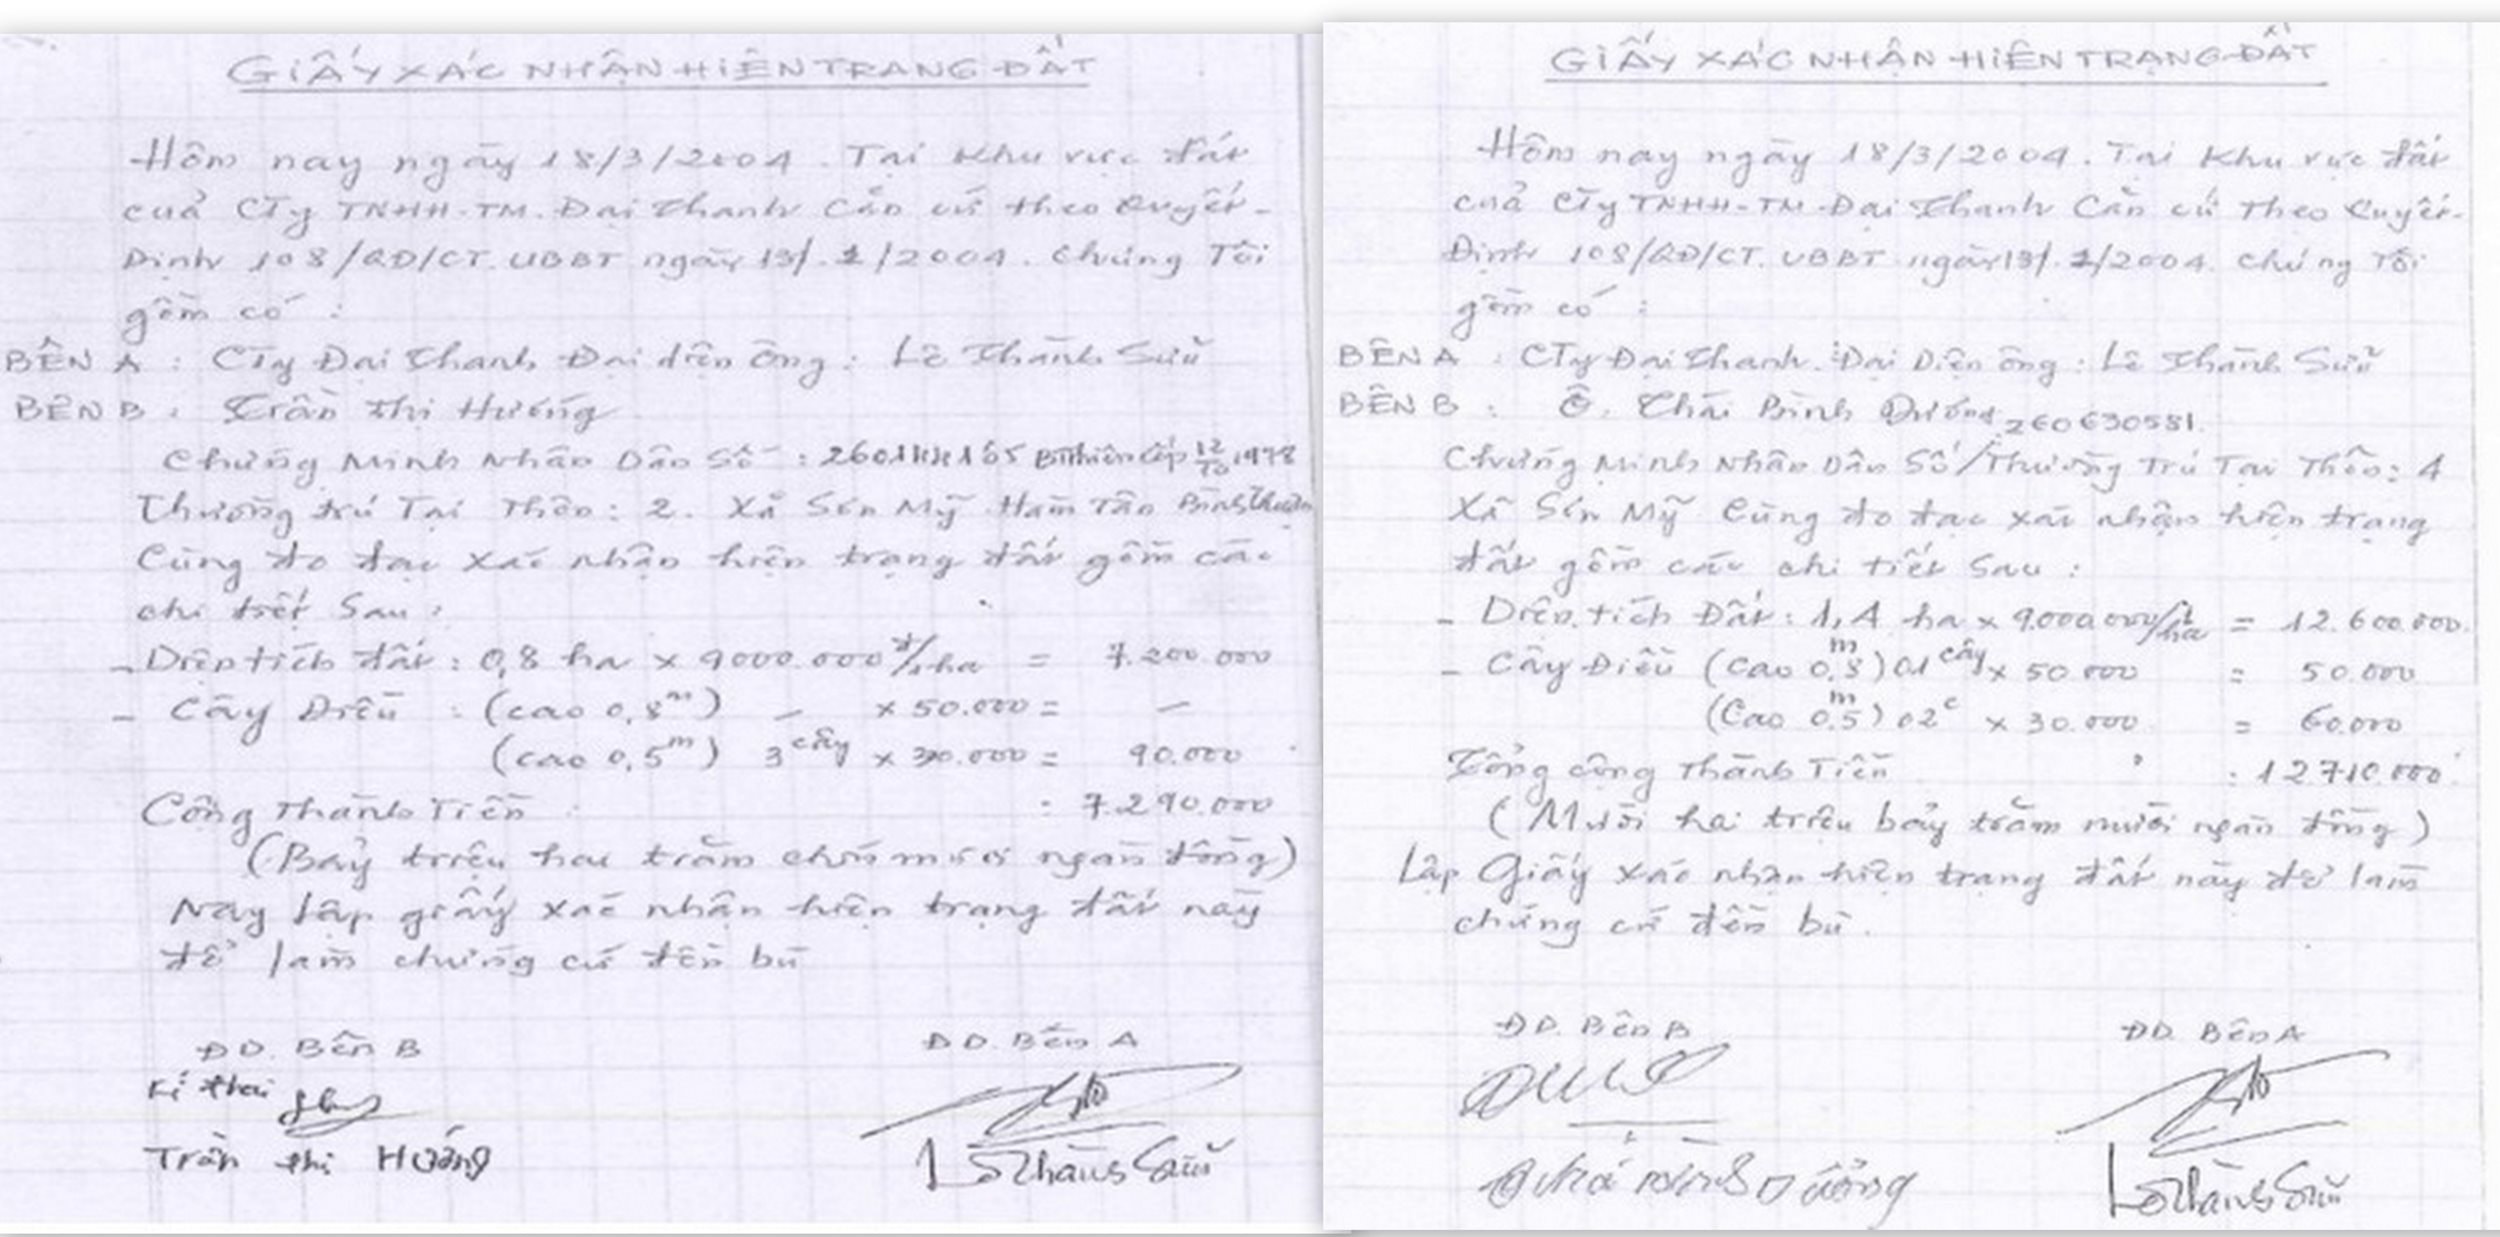 GIẤY XÁC NHẬN HIÊN TRANG ĐẤT
Hôm nay ngày 18/3/2004. Tại khu vực đất
cuả CTy TNHH-TM. Đại Thanh Căn cứ theo Quyết-
Định 108/QĐ/CT. UBBT ngày 13/.1/2004. Chúng Tôi
gồm có :
BÊN A : CTy Đại Thanh Đại diện Ông : Lê Thành Sửu
BÊN B : Trần Thi Hường
Chứng Minh Nhân Dân Số : BThuận Cấp 12/10 1978
Thường trú Tại Thôn : 2. Xã Sơn Mỹ Hàm Tân Bình Thuận
Cùng đo đạc xác nhận hiện trạng đất gồm các
chi tiết Sau :
- Diện tích đất : 0,8 ha x 9000.000đ/ha = 7.200.000
- Cây Điều : (cao 0,8m) - x 50.000 = -
(cao 0,5m) 3 cây x 30.000 = 90.000
Cộng Thành Tiền : = 7.290.000
(Bảy triệu hai trăm chín mươi ngàn đồng)
Nay lập giấy xác nhận hiện trạng đất này
để làm chứng cứ đền bù
ĐD. Bên B
ĐD. Bên A
Kí thai
Trần thị Hường
Lê Thành Sửu
GIẤY XÁC NHẬN HIÊN TRẠNG ĐẤT
Hôm nay ngày 18/3/2004. Tại Khu vực đất
cuả CTy TNHH-TM-Đại Thanh Căn cứ Theo Quyết-
Định 108/QĐ/CT. UBBT ngày 13/.1/2004. Chúng Tôi
gồm có :
BÊN A : CTy Đại Thanh. Đại Diện ông : Lê Thành Sửu
BÊN B : Ô. Thái Bình Dương 260630581.
Chứng Minh Nhân Dân Số / Thường Trú Tại Thôn : 4
Xã Sơn Mỹ Cùng đo đạc xác nhận hiện trạng
đất gồm các chi tiết Sau :
- Diện tích Đất : 1,4 ha x 9.000.000/ha = 12.600.000
- Cây Điều (Cao 0,8m) 01 cây x 50.000 = 50.000
(Cao 0.5m) 02c x 30.000 = 60.000
Tổng cộng Thành Tiền : 12.710.000
(Mười hai triệu bảy trăm mười ngàn đồng)
Lập Giấy xác nhận hiện trạng đất này để làm
chứng cứ đền bù.
ĐD. Bên B
ĐD. Bên A
Thái Bình Dương
Lê Thành Sửu